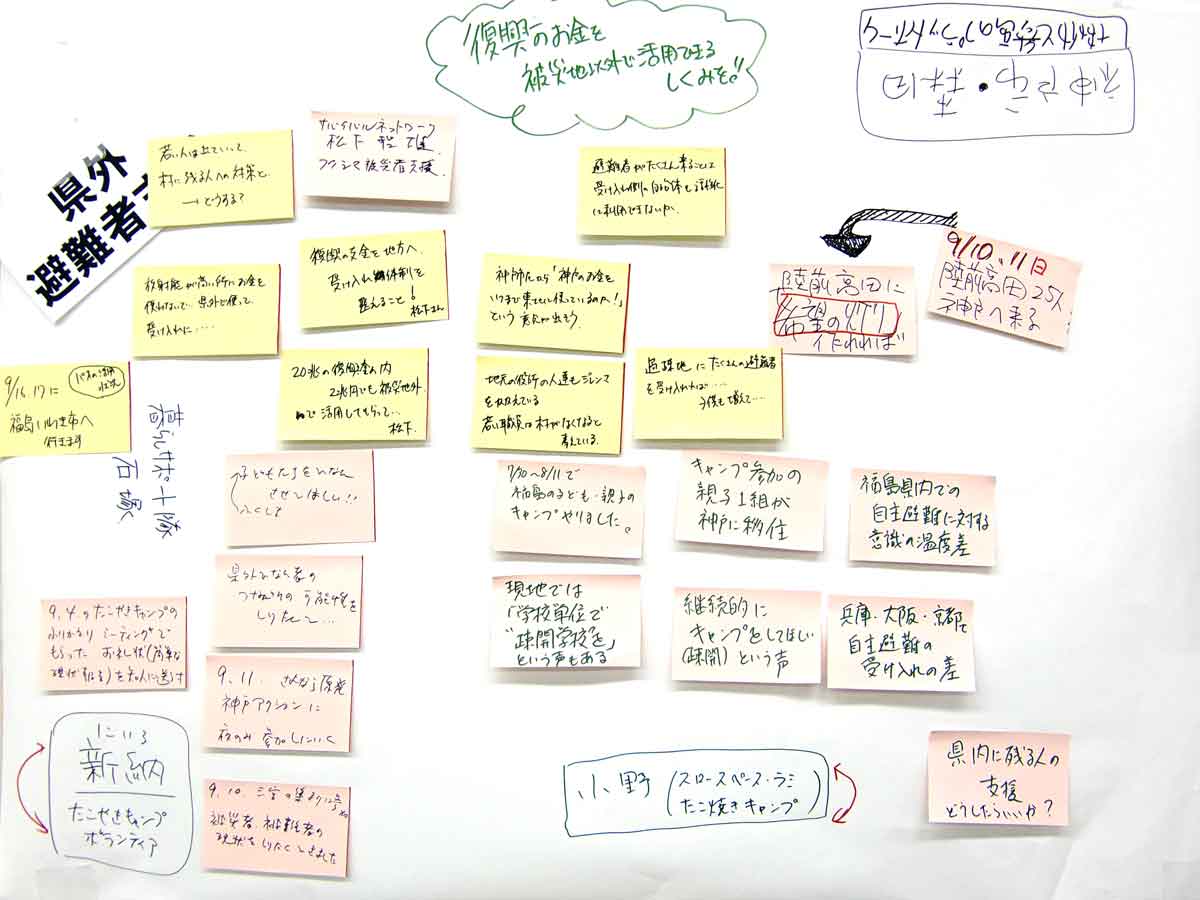 復興のお金を
被災地以外で活用できる
しくみを!!
県外
避難者
若い人は出ていって、
村に残る人への対策と、
→どうする?
サバイバルネットワーク
松下
フクシマ被災者支援
避難者がたくさん来ることは
受け入れ側の自治体も
に利用できないか。
放射能が高い所にお金を
使わないで、県外で使って、
受け入れに……
復興の支金を地方へ
受け入れ体制を
整えること!
松下さん
神戸市から「神戸のお金を
いつまで東北に使っているのか!」
という意見が出そう。
陸前高田に
希望の灯り
9/10、11日
陸前高田 25人
神戸へ来る
20兆の復興資金の内
2兆円でも被災地外
で活用してもらって…
松下
地元の役所の人達もジレンマ
をかかえている
若い職員は村がなくなると
考えている。
過疎地にたくさんの避難者
を受け入れれば……
子供も増えて…
9/16.17に
福島いわき市へ
行きます
暮らしサポート隊
石塚
させてほしい!!
7/30~8/11で
福島の子ども・親子の
キャンプやりました。
キャンプ参加の
親子1組が
神戸に移住
福島県内での
自主避難に対する
意識の温度差
つながりの可能性を
しりたい…
現地では
「学校単位で
"疎開学校"を」
という声もある
継続的に
キャンプをしてほしい
(疎開)という声
兵庫・大阪・京都で
自主避難の
受け入れの差
9.4.のたこやきキャンプの
ふりかえりミーティングで
もらった お礼状(簡単な
9.11. さよなら原発
神戸アクションに
参加しにいく
にいろ
新納
たこやきキャンプ
ボランティア
9.10.
被災者、避難者の
現状をしりたくてきました
小野(スロースペース・ラミ
たこ焼きキャンプ)
県内に残る人の
支援
どうしたらいいか?